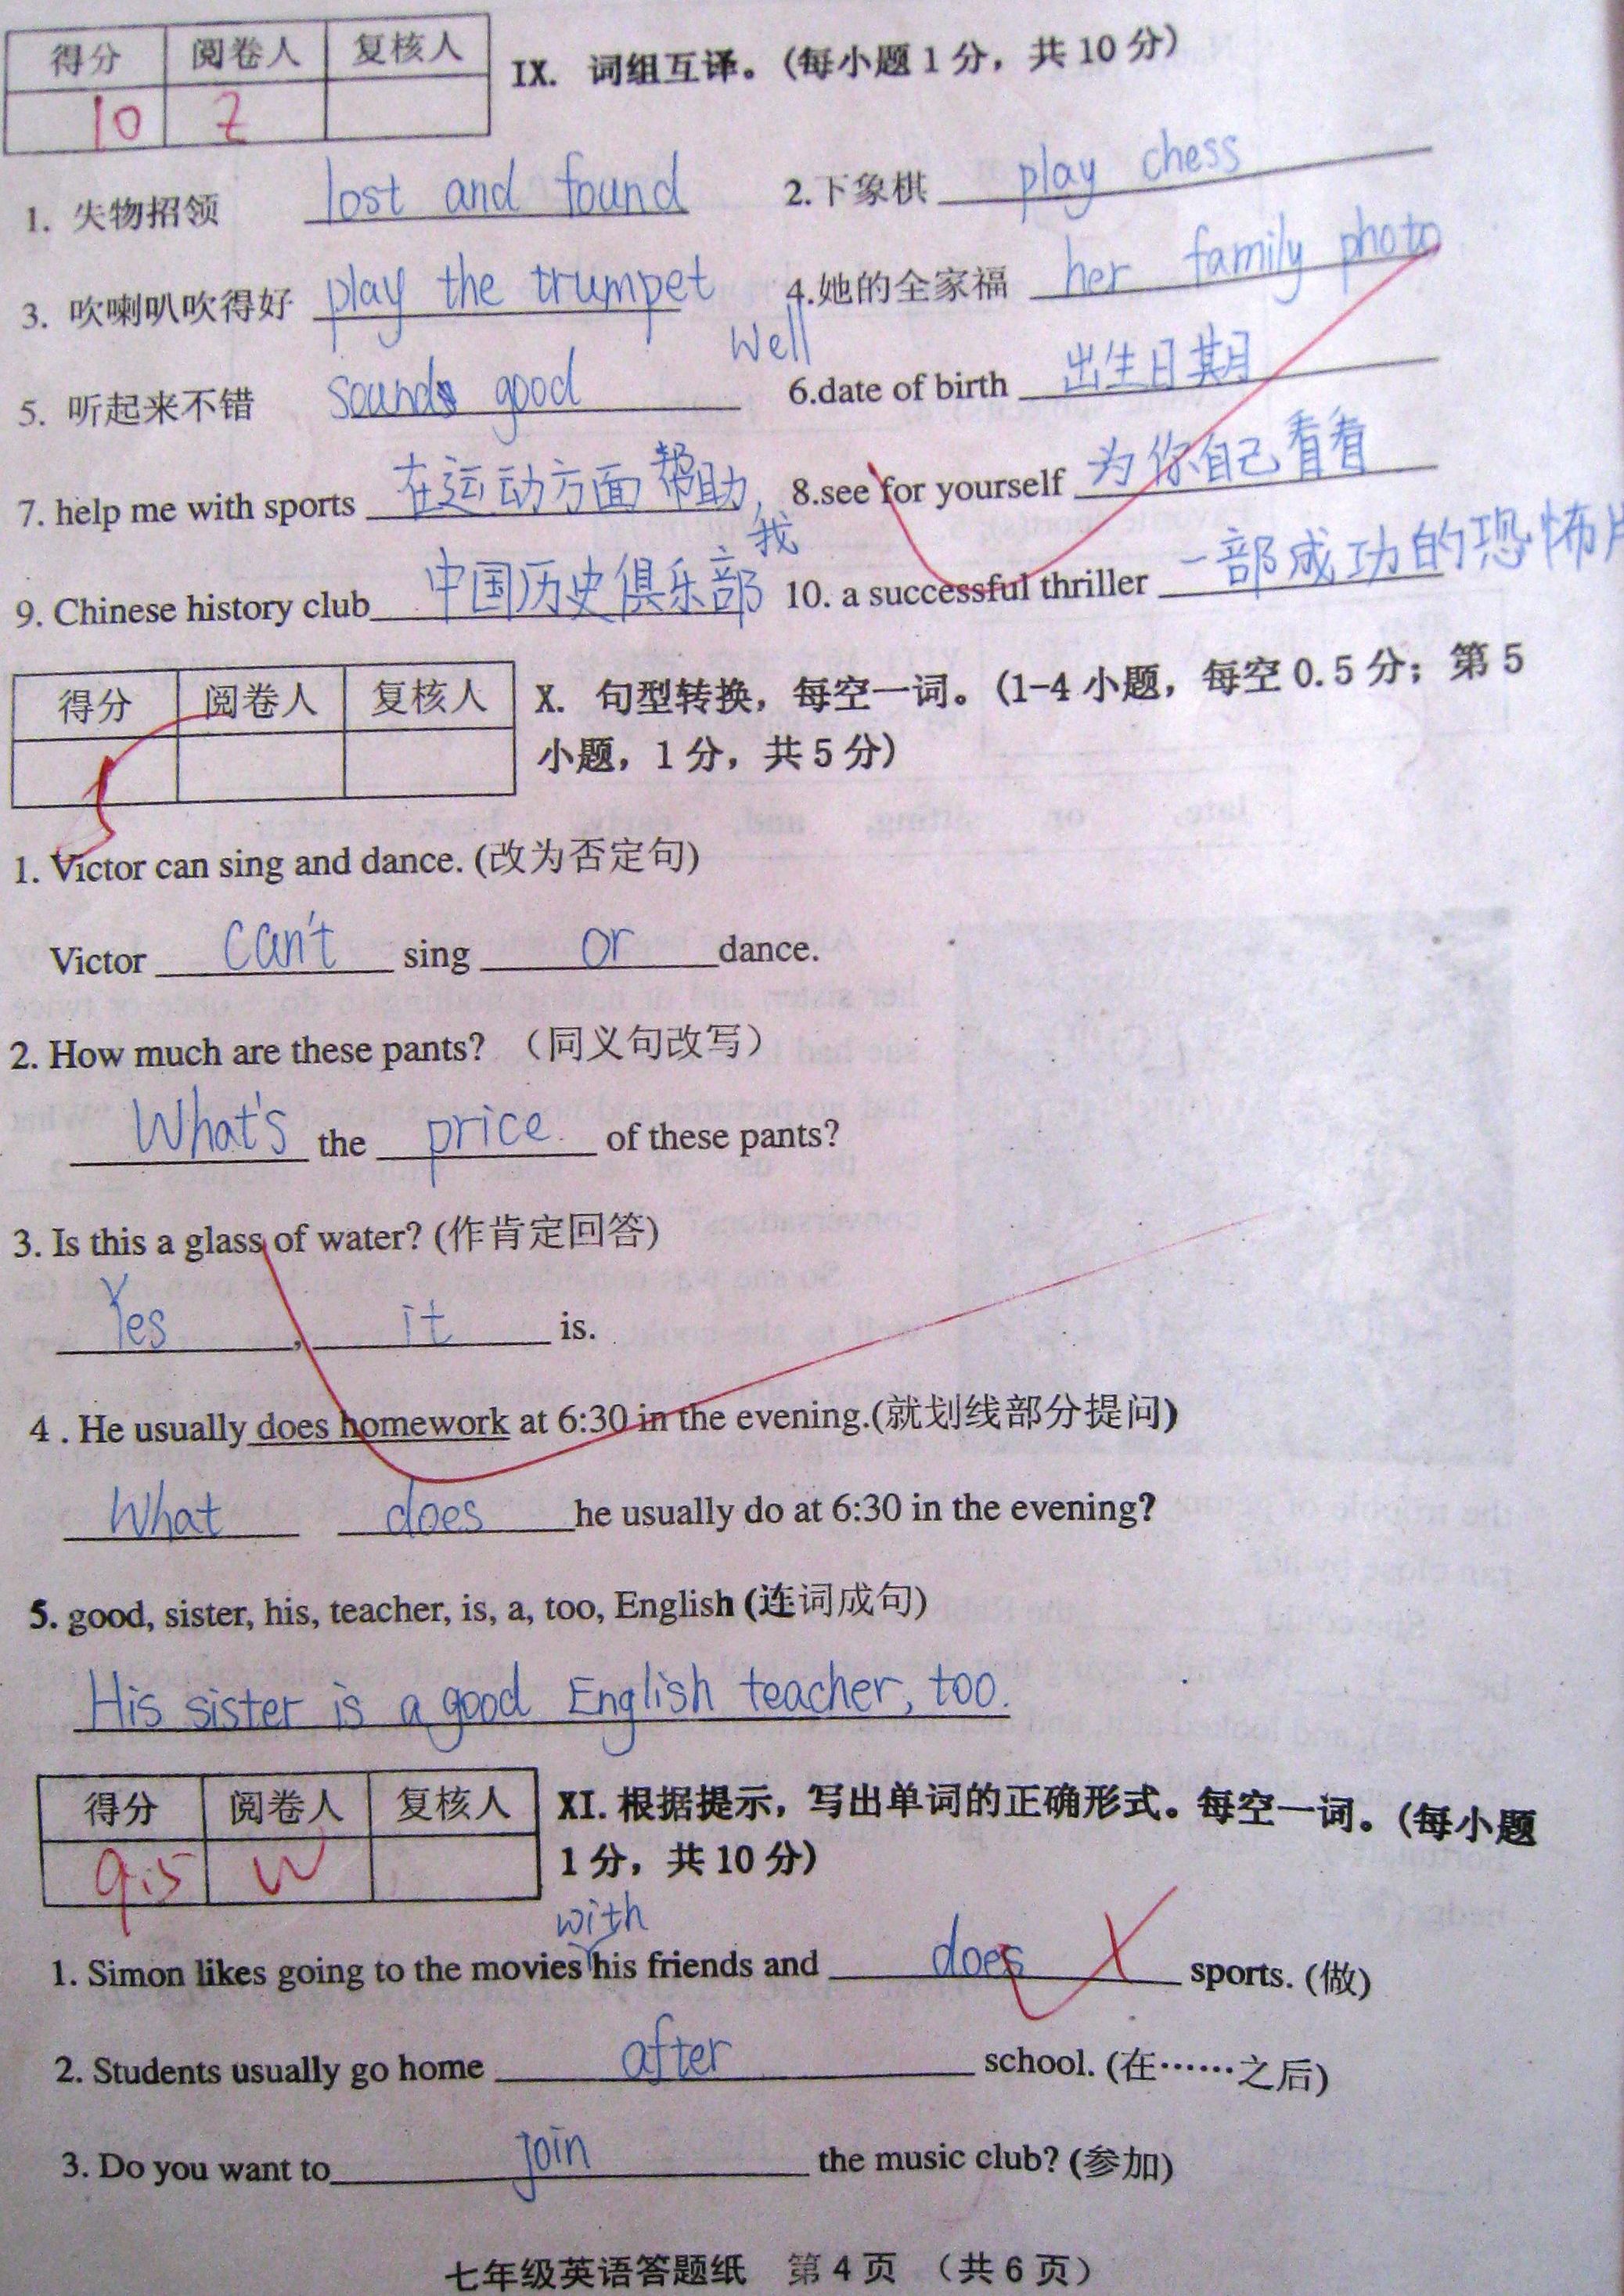 得分 阅卷人 复核人
IX. 词组互译。(每小题1分，共10分)
10 Z
1. 失物招领 lost and found 2.下象棋 play chess
3. 吹喇叭吹得好 play the trumpet well 4.她的全家福 her family photo
5. 听起来不错 sounds good 6.date of birth 出生日期
7. help me with sports 在运动方面帮助我 8.see for yourself 为你自己看看
9. Chinese history club 中国历史俱乐部 10. a successful thriller 一部成功的恐怖片
得分 阅卷人 复核人
X. 句型转换，每空一词。(1-4小题，每空0.5分；第5
小题，1分，共5分)
5
1. Victor can sing and dance. (改为否定句)
Victor can't sing or dance.
2. How much are these pants? （同义句改写）
What's the price of these pants?
3. Is this a glass of water? (作肯定回答)
Yes, it is.
4 . He usually does homework at 6:30 in the evening.(就划线部分提问)
What does he usually do at 6:30 in the evening?
5. good, sister, his, teacher, is, a, too, English (连词成句)
His sister is a good English teacher, too.
得分 阅卷人 复核人
XI. 根据提示，写出单词的正确形式。每空一词。(每小题
1分，共10分)
9.5 W
with
1. Simon likes going to the movies his friends and does sports. (做)
2. Students usually go home after school. (在……之后)
3. Do you want to join the music club? (参加)
七年级英语答题纸 第4页 （共6页）